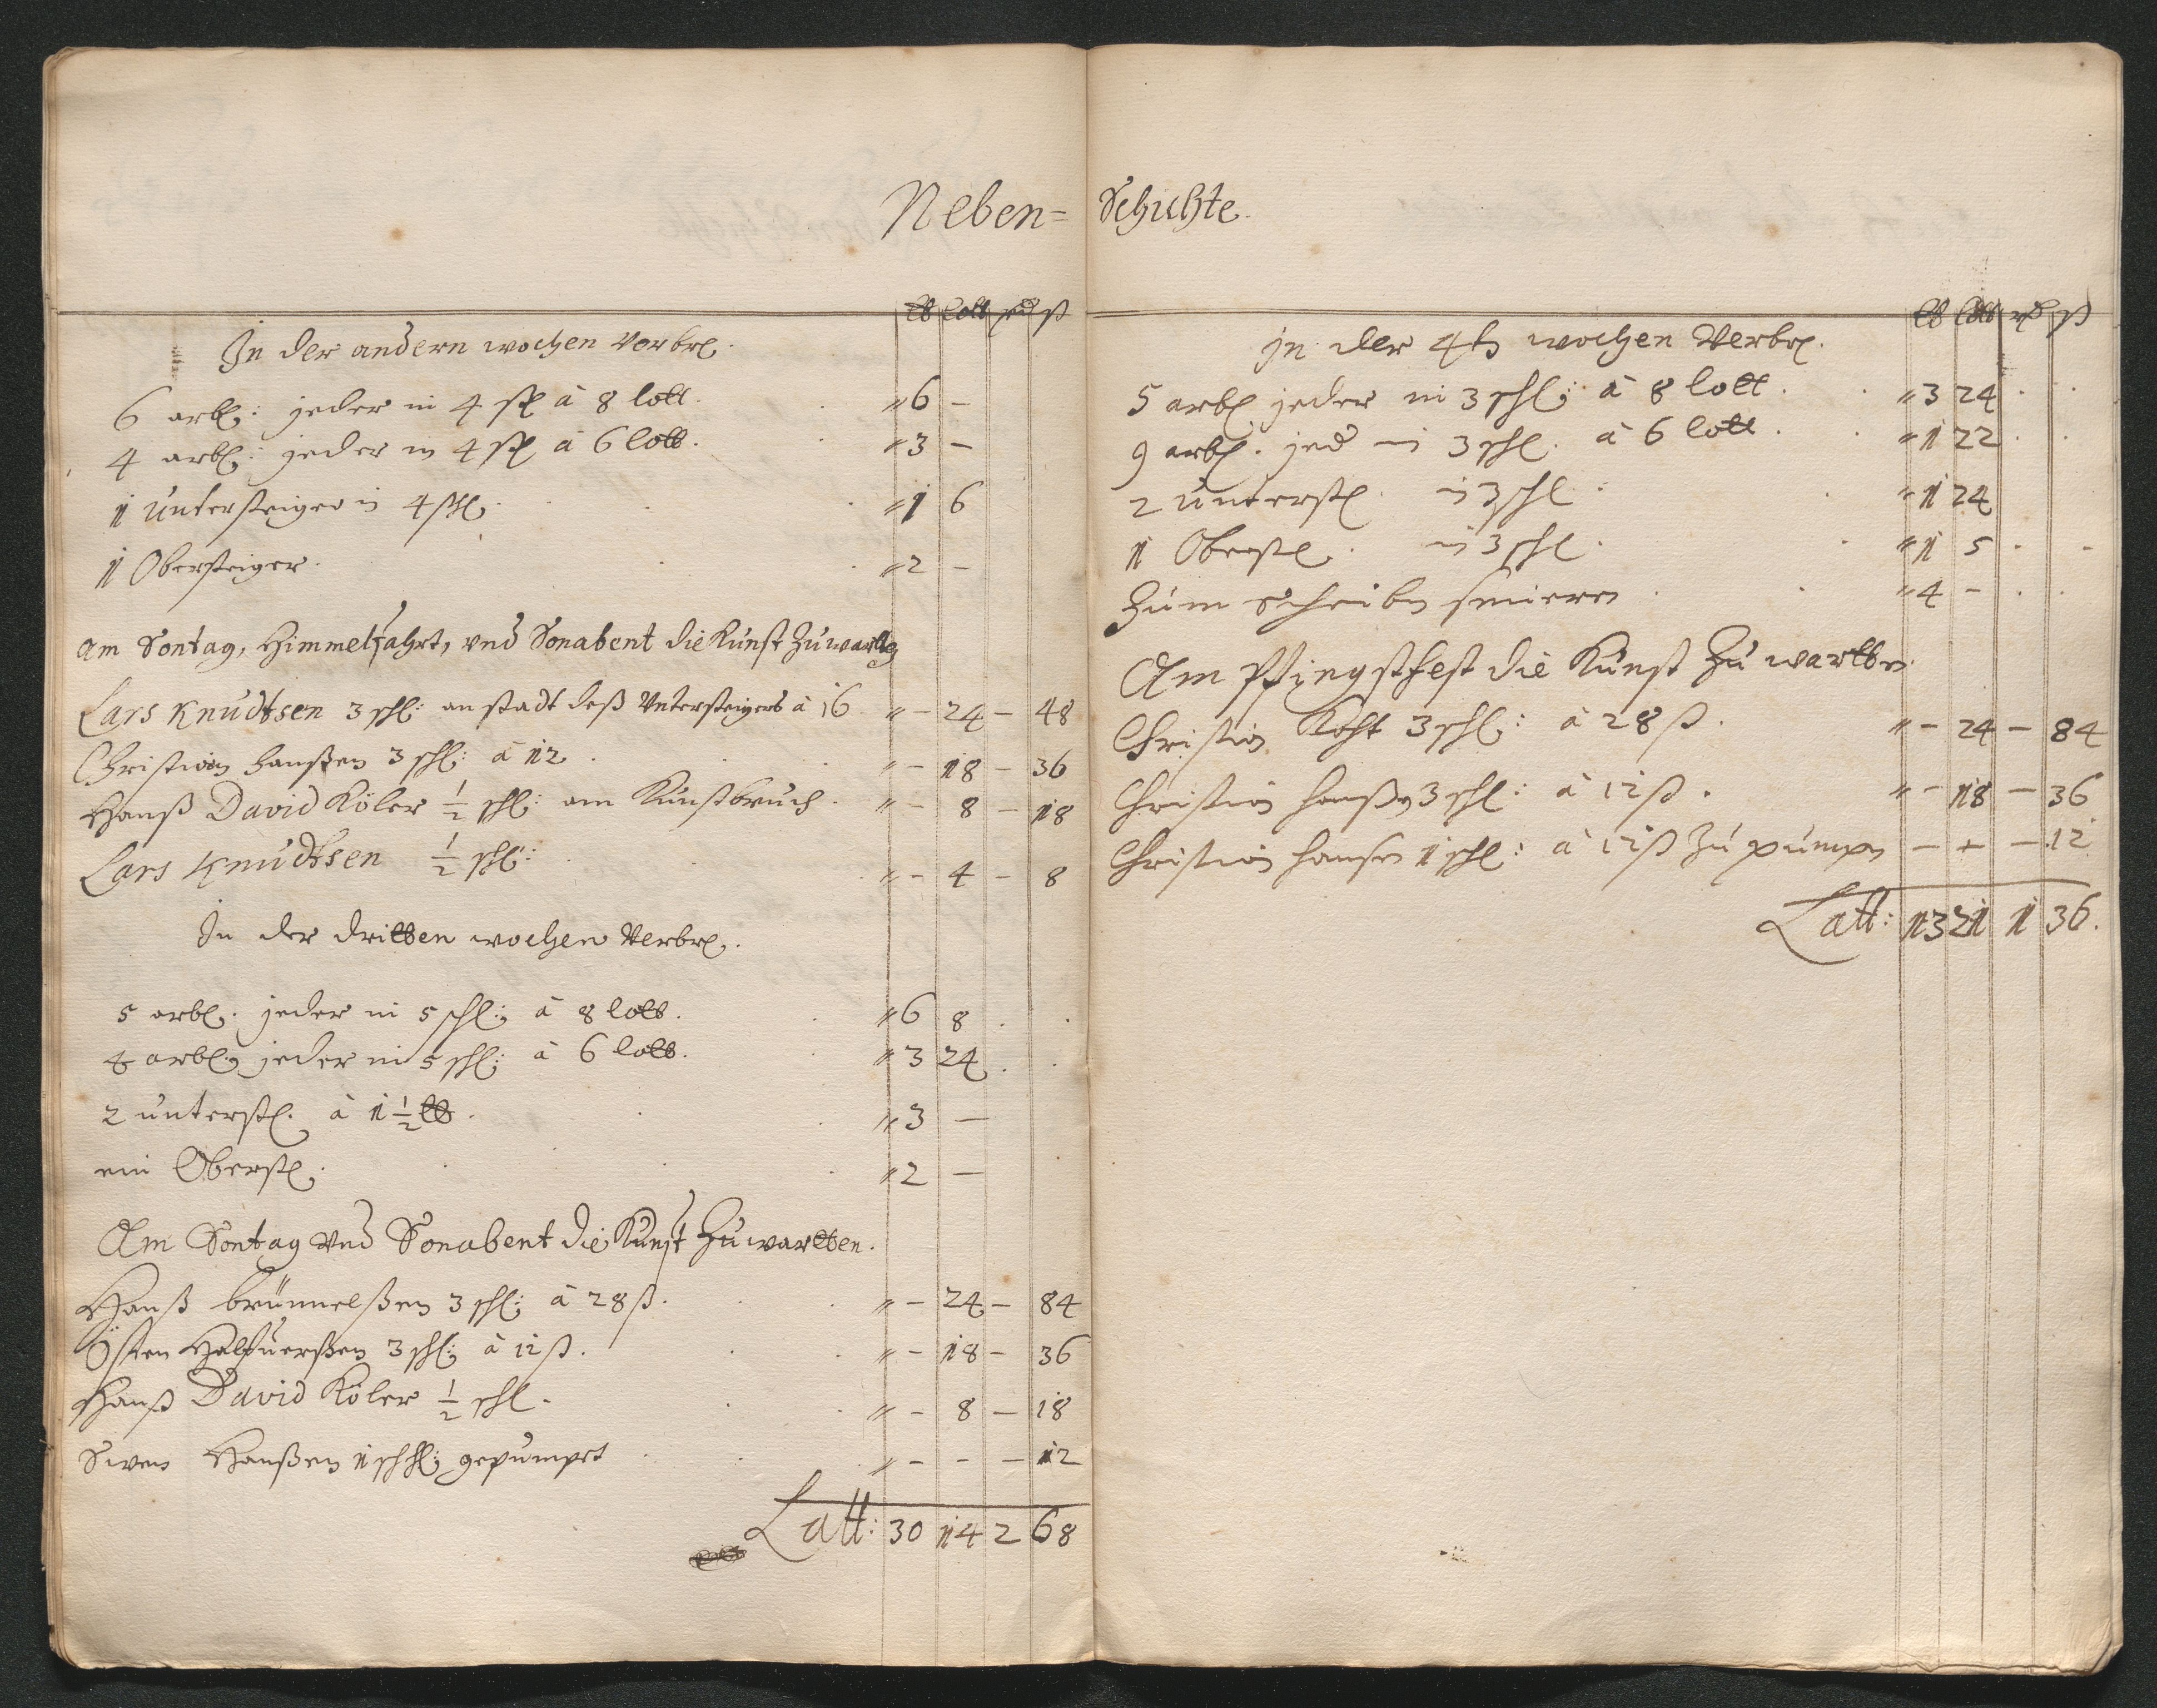 Neben= Schichte.
lb lott rd ß
In der andern wochen verbr.
6 arb: jeder in 4 sch à 8 lott. " 6 -
4 arb: jeder in 4 sch à 6 lott. " 3 -
1 Untersteiger in 4 schl. " 1 6
1 Obersteiger. " 2 -
am Sontag, Himmelfahrt, vnd Sonabent die Kunst zu wartten
Lars Knudtsen 3 schl: an stadt deß Vntersteigers à 16 " - 24 - 48
Christian Hanßen 3 schl: à 12. " - 18 - 36
Hanß David Köler ½ schl: am Kunstbruch. " - 8 - 18
Lars Knudtsen ½ schl: " - 4 - 8
In der dritten wochen verbr.
5 arb. jeder in 5 schl: à 8 lott. " 6 8 . .
4 arb. jeder in 5 schl: à 6 lott. " 3 24 . .
2 unterst. à 1½ lb. " 3 -
ein Oberst. " 2 -
Am Sontag vnd Sonabent die Kunst zu wartten.
Hanß Brünnelßen 3 schl: à 28 ß. " - 24 - 84
Östen Halfuerßen 3 schl: à 12 ß. " - 18 - 36
Hanß David Köler ½ schl. " - 8 - 18
Swen Hanßen 1 schl: gepumpet " - - - 12
Latt: 30 14 2 68
lb lott rd ß
In der 4t wochen verbr.
5 arb jeder in 3 schl: à 8 lott. " 3 24 . .
9 arb. jed in 3 schl. à 6 lott. " 1 22 . .
2 unterst. in 3 schl. " 1 24
1 Oberst. in 3 schl. " 1 5 . -
Zum scheiben smieren " 4 - . .
Am Pfingstfest die Kunst zu wartten.
Christian Koht 3 schl: à 28 ß. " - 24 - 84
Christian Hanßen 3 schl: à 12 ß. " - 18 - 36
Christian Hansen 1 schl: à 12 ß zu pumpen - + - 12
Latt: 13 21 1 36.